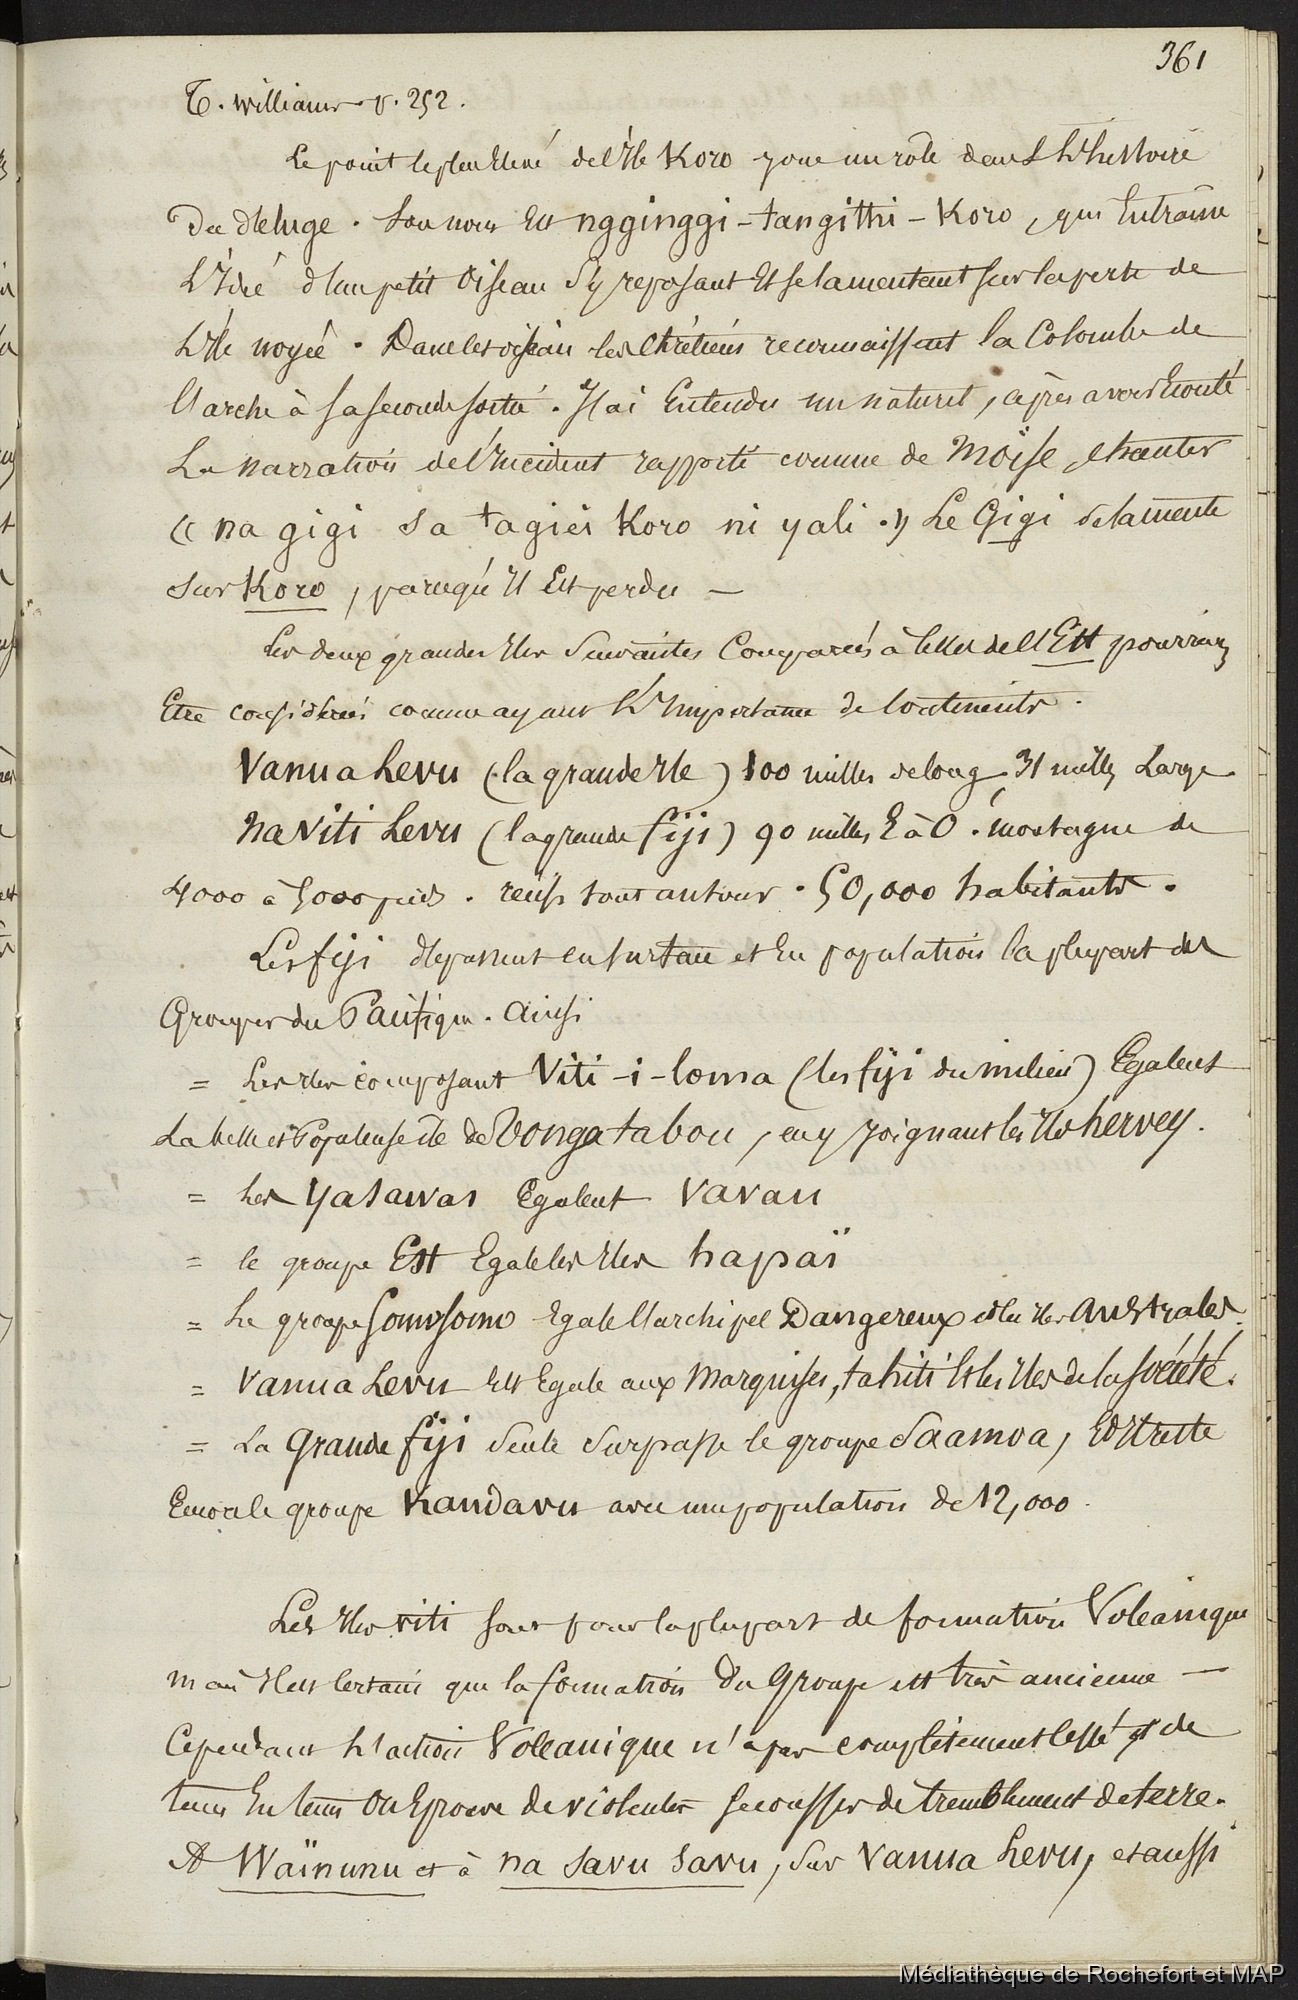 361
T. Williams. v. 252.
Le point le plus Elevé de l'Ile Koro joue un rôle dans l'histoire
Du déluge. Son nom Est ngginggi-tangithi-Koro, qui Entraine
L'Idée d'un petit Oiseau S'y reposant Et se lamentant sur la perte de
L'Ile noyée. Dans les oiseau les Chrétiens reconnaissent la Colombe de
l'arche à sa seconde sortie. J'ai Entendu un naturel, après avoir Ecouté
La narration de l'Incident rapporté comme de Moïse, chanter
« na gigi sa tagici Koro ni yali. » Le Gigi se lamente
sur Koro, parcequ'il Est perdu —
Les deux grandes Iles Suivantes Comparées à Celles de l'Est pourraient
Etre considérées comme ayant L'Importance de Continents.
Vanua Levu (la grande Ile) 100 milles de long, 31 milles Large
Na Viti Levu (la grande fiji) 90 milles E à O. montagne de
4000 à 5000 pieds. récifs tout autour. 50,000 habitants.
Les fiji dépassent en surface et En population la plupart des
Groupes du Pacifique. Ainsi
= Les Iles composant Viti-i-loma (les fiji du milieu) Egalent
La belle et Populeuse île de Tongatabou, en y Joignant les Iles hervey.
= Les Yasawas Egalent Vavau
= le groupe Est Egale les Iles hapaï
= Le groupe Somosomo Egale l'archipel Dangereux et les Iles Australes.
= Vanua Levu Est Egale aux Marquises, tahiti Et les Iles de la Société.
= La Grande fiji Seule Surpasse le groupe Saamoa, Et Il reste
Encore le groupe Kandavu avec une population de 12,000.
Les Iles viti sont pour la plupart de formation Volcanique
mais Il est Certain que la formation Du Groupe est très ancienne —
Cependant L'action Volcanique n'a pas complètement Cessé et de
tems En tems On Eprouve de violentes secousses de tremblement de terre.
A Waïnunu et à na Savu Savu, sur Vanua Levu, et aussi
Médiathèque de Rochefort et MAP